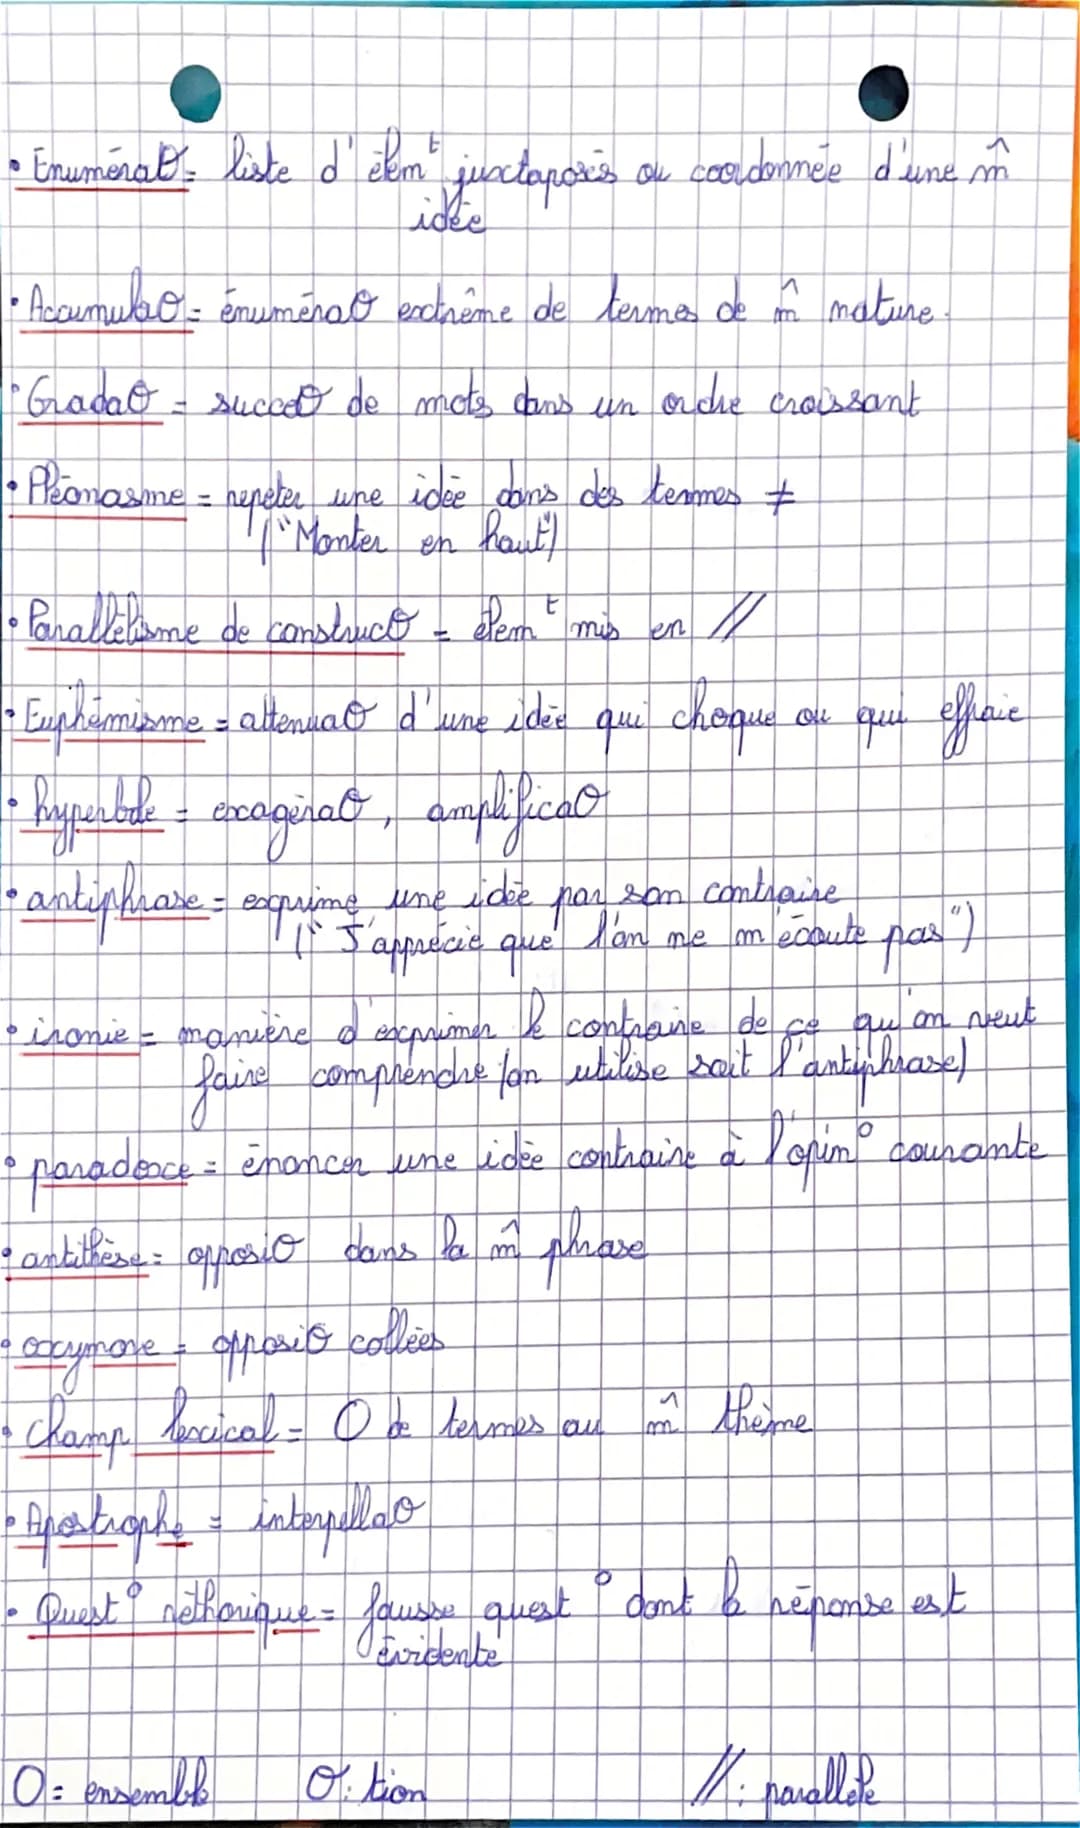 • Énumérat° = liste d'élem^t juxtaposés ou coordonnée d'une m̂
idée
• Accumula° = énuméra° extrême de termes de m̂ nature.
• Grada° = success° de mots dans un ordre croissant
• Pléonasme = repeter une idée dans des termes ≠
("Monter en haut")
• Parallélisme de construct° = élem^t mis en //
• Euphémisme = attenua° d'une idée qui choque ou qui effraie
• hyperbole = exagéra°, amplifica°
• antiphrase = exprime une idée par son contraire
("J'apprécie que l'on ne m'écoute pas")
• ironie = manière d'exprimer le contraire de ce qu'on veut
faire comprendre (on utilise soit l'antiphrase)
• paradoxe = énoncer une idée contraire à l'opin° courante
• antithèse = opposi° dans la m̂ phrase
• oxymore = opposi° collées
• Champ lexical = O de termes au m̂ thème
• Apostrophe = interpella°
• Quest° réthorique = fausse quest° dont la réponse est
évidente
O = ensemble σ : tion // : parallèle